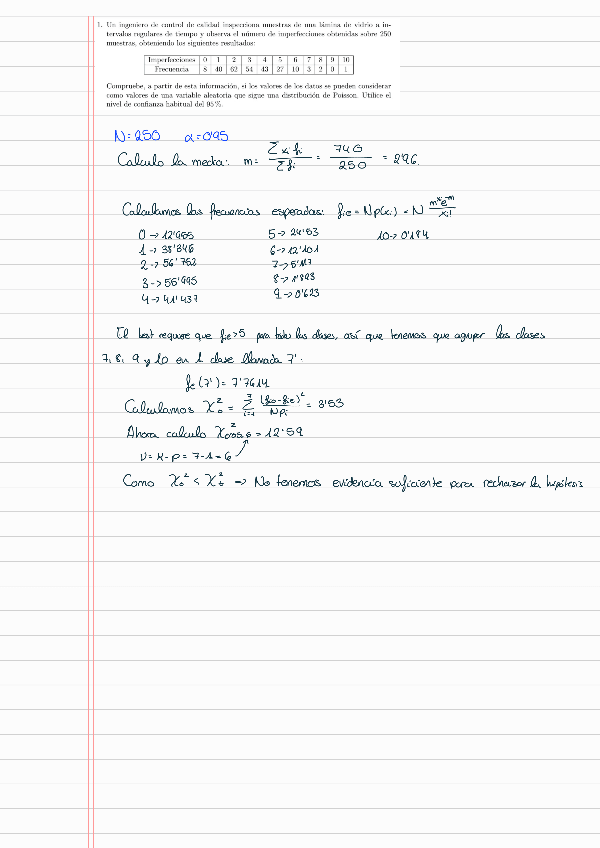 1. Un ingeniero de control de calidad inspecciona muestras de una lámina de vidrio a in-
tervalos regulares de tiempo y observa el número de imperfecciones obtenidas sobre 250
muestras, obteniendo los siguientes resultados:
Imperfecciones 0 1 2 3 4 5 6 7 8 9 10
Frecuencia 8 40 62 54 43 27 10 3 2 0 1
Compruebe, a partir de esta información, si los valores de los datos se pueden considerar
como valores de una variable aleatoria que sigue una distribución de Poisson. Utilice el
nivel de confianza habitual del 95%.
N=250 α=0'95
Calculo la media: m= Σxifi / Σfi = 740 / 250 = 2'96.
Calculamos las frecuencias esperadas: fie = Np(xi) = N m^xi e^-m / xi!
0 → 12'955 5 → 24'53 10 → 0'184
1 → 38'346 6 → 12'101
2 → 56'752 7 → 5'117
3 → 55'995 8 → 1'893
4 → 41'437 9 → 0'623
El test requiere que fie>5 para todas las clases, así que tenemos que agrupar las clases
7, 8, 9 y 10 en 1 clase llamada 7'.
fe(7') = 7'7614
Calculamos X₀² = Σ (fio-fie)² / Npi = 3'53
Ahora calculo X²0'05,6 = 12'59
ν = K-p = 7-1 = 6
Como X₀² < Xt² → No tenemos evidencia suficiente para rechazar la hipótesis